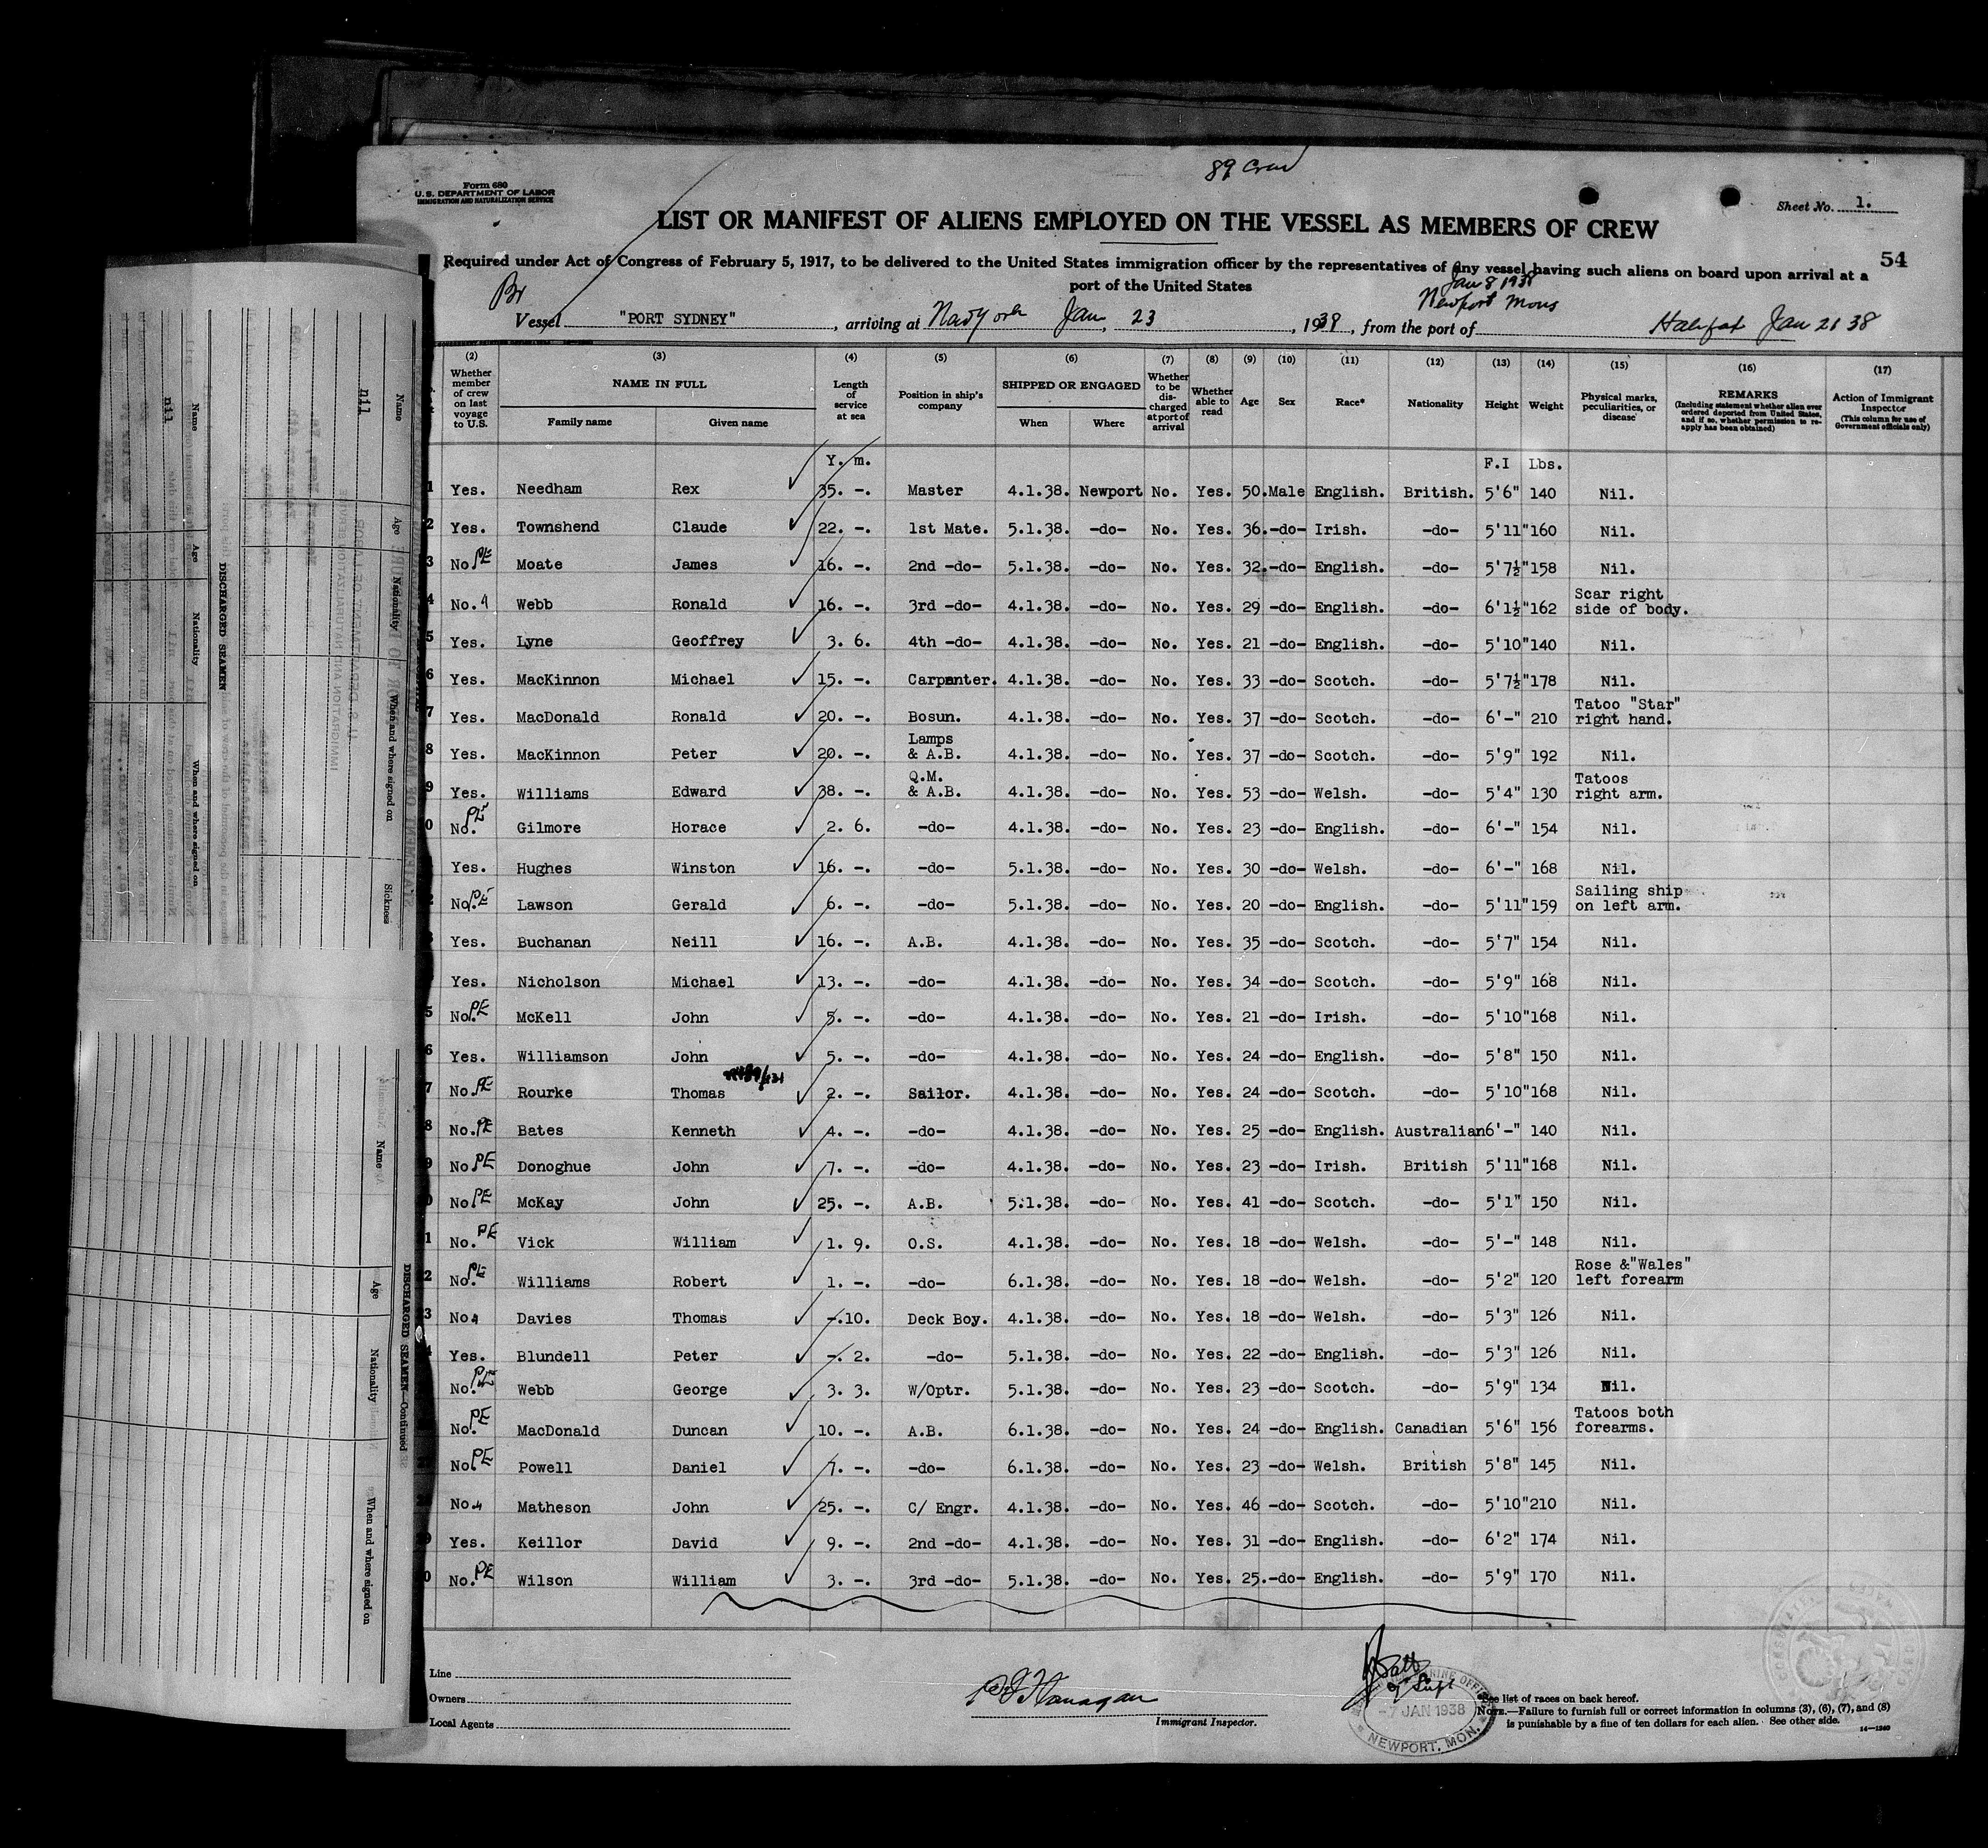 89 Crew
Form 680
U. S. DEPARTMENT OF LABOR
IMMIGRATION AND NATURALIZATION SERVICE
Sheet No. 1.
LIST OR MANIFEST OF ALIENS EMPLOYED ON THE VESSEL AS MEMBERS OF CREW
54
Required under Act of Congress of February 5, 1917, to be delivered to the United States immigration officer by the representatives of any vessel having such aliens on board upon arrival at a
port of the United States
Jan 8 1938
Br Newport Mons
Vessel "PORT SYDNEY", arriving at New York Jan, 23, 1938, from the port of Halifax Jan 21 38
(2) (3) (4) (5) (6) (7) (8) (9) (10) (11) (12) (13) (14) (15) (16) (17)
Whether member of crew on last voyage to U.S. NAME IN FULL Family name Given name Length of service at sea Position in ship's company SHIPPED OR ENGAGED When Where Whether to be discharged at port of arrival Whether able to read Age Sex Race* Nationality Height Weight Physical marks, peculiarities, or disease REMARKS (Including statement whether alien ever ordered deported from United States, and if so, whether permission to reapply has been obtained) Action of Immigrant Inspector (This column for use of Government officials only)
Y. m. F.I Lbs.
1 Yes. Needham Rex 35. -. Master 4.1.38. Newport No. Yes. 50. Male English. British. 5'6" 140 Nil.
2 Yes. Townshend Claude 22. -. 1st Mate. 5.1.38. -do- No. Yes. 36. -do- Irish. -do- 5'11" 160 Nil.
3 No PE Moate James 16. -. 2nd -do- 5.1.38. -do- No. Yes. 32. -do- English. -do- 5'7½" 158 Nil.
4 No. Webb Ronald 16. -. 3rd -do- 4.1.38. -do- No. Yes. 29 -do- English. -do- 6'1½" 162 Scar right side of body.
5 Yes. Lyne Geoffrey 3. 6. 4th -do- 4.1.38. -do- No. Yes. 21 -do- English. -do- 5'10" 140 Nil.
6 Yes. MacKinnon Michael 15. -. Carpenter. 4.1.38. -do- No. Yes. 33 -do- Scotch. -do- 5'7½" 178 Nil.
7 Yes. MacDonald Ronald 20. -. Bosun. 4.1.38. -do- No. Yes. 37 -do- Scotch. -do- 6'-" 210 Tatoo "Star" right hand.
8 Yes. MacKinnon Peter 20. -. Lamps & A.B. 4.1.38. -do- No. Yes. 37 -do- Scotch. -do- 5'9" 192 Nil.
9 Yes. Williams Edward 38. -. Q.M. & A.B. 4.1.38. -do- No. Yes. 53 -do- Welsh. -do- 5'4" 130 Tatoos right arm.
0 No. PE Gilmore Horace 2. 6. -do- 4.1.38. -do- No. Yes. 23 -do- English. -do- 6'-" 154 Nil.
Yes. Hughes Winston 16. -. -do- 5.1.38. -do- No. Yes. 30 -do- Welsh. -do- 6'-" 168 Nil.
2 No. PE Lawson Gerald 6. -. -do- 5.1.38. -do- No. Yes. 20 -do- English. -do- 5'11" 159 Sailing ship on left arm.
3 Yes. Buchanan Neill 16. -. A.B. 4.1.38. -do- No. Yes. 35 -do- Scotch. -do- 5'7" 154 Nil.
Yes. Nicholson Michael 13. -. -do- 4.1.38. -do- No. Yes. 34 -do- Scotch. -do- 5'9" 168 Nil.
5 No. PE McKell John 5. -. -do- 4.1.38. -do- No. Yes. 21 -do- Irish. -do- 5'10" 168 Nil.
6 Yes. Williamson John 5. -. -do- 4.1.38. -do- No. Yes. 24 -do- English. -do- 5'8" 150 Nil.
7 No. PE Rourke Thomas 2. -. Sailor. 4.1.38. -do- No. Yes. 24 -do- Scotch. -do- 5'10" 168 Nil.
8 No. PE Bates Kenneth 4. -. -do- 4.1.38. -do- No. Yes. 25 -do- English. Australian 6'-" 140 Nil.
9 No. PE Donoghue John 7. -. -do- 4.1.38. -do- No. Yes. 23 -do- Irish. British 5'11" 168 Nil.
0 No. PE McKay John 25. -. A.B. 5.1.38. -do- No. Yes. 41 -do- Scotch. -do- 5'1" 150 Nil.
1 No. PE Vick William 1. 9. O.S. 4.1.38. -do- No. Yes. 18 -do- Welsh. -do- 5'-" 148 Nil.
2 No. PE Williams Robert 1. -. -do- 6.1.38. -do- No. Yes. 18 -do- Welsh. -do- 5'2" 120 Rose &"Wales" left forearm
3 No. Davies Thomas -.10. Deck Boy. 4.1.38. -do- No. Yes. 18 -do- Welsh. -do- 5'3" 126 Nil.
Yes. Blundell Peter -. 2. -do- 5.1.38. -do- No. Yes. 22 -do- English. -do- 5'3" 126 Nil.
No. PE Webb George 3. 3. W/Optr. 5.1.38. -do- No. Yes. 23 -do- Scotch. -do- 5'9" 134 Nil.
No. PE MacDonald Duncan 10. -. A.B. 6.1.38. -do- No. Yes. 24 -do- English. Canadian 5'6" 156 Tatoos both forearms.
No. PE Powell Daniel 7. -. -do- 6.1.38. -do- No. Yes. 23 -do- Welsh. British 5'8" 145 Nil.
No. Matheson John 25. -. C/ Engr. 4.1.38. -do- No. Yes. 46 -do- Scotch. -do- 5'10" 210 Nil.
9 Yes. Keillor David 9. -. 2nd -do- 4.1.38. -do- No. Yes. 31 -do- English. -do- 6'2" 174 Nil.
0 No. PE Wilson William 3. -. 3rd -do- 5.1.38. -do- No. Yes. 25. -do- English. -do- 5'9" 170 Nil.
Line
Owners
Local Agents
Flanagan
Immigrant Inspector.
MARINE OFFICE
-7 JAN 1938
NEWPORT, MON.
See list of races on back hereof.
NOTE.—Failure to furnish full or correct information in columns (3), (6), (7), and (8)
is punishable by a fine of ten dollars for each alien. See other side.
14-1240
Name Age Nationality When and where signed on Sickness
nil
DISCHARGED SEAMEN
Name Age Nationality When and where signed on
nil
DISCHARGED SEAMEN—Continued
Name Age Nationality When and where signed on